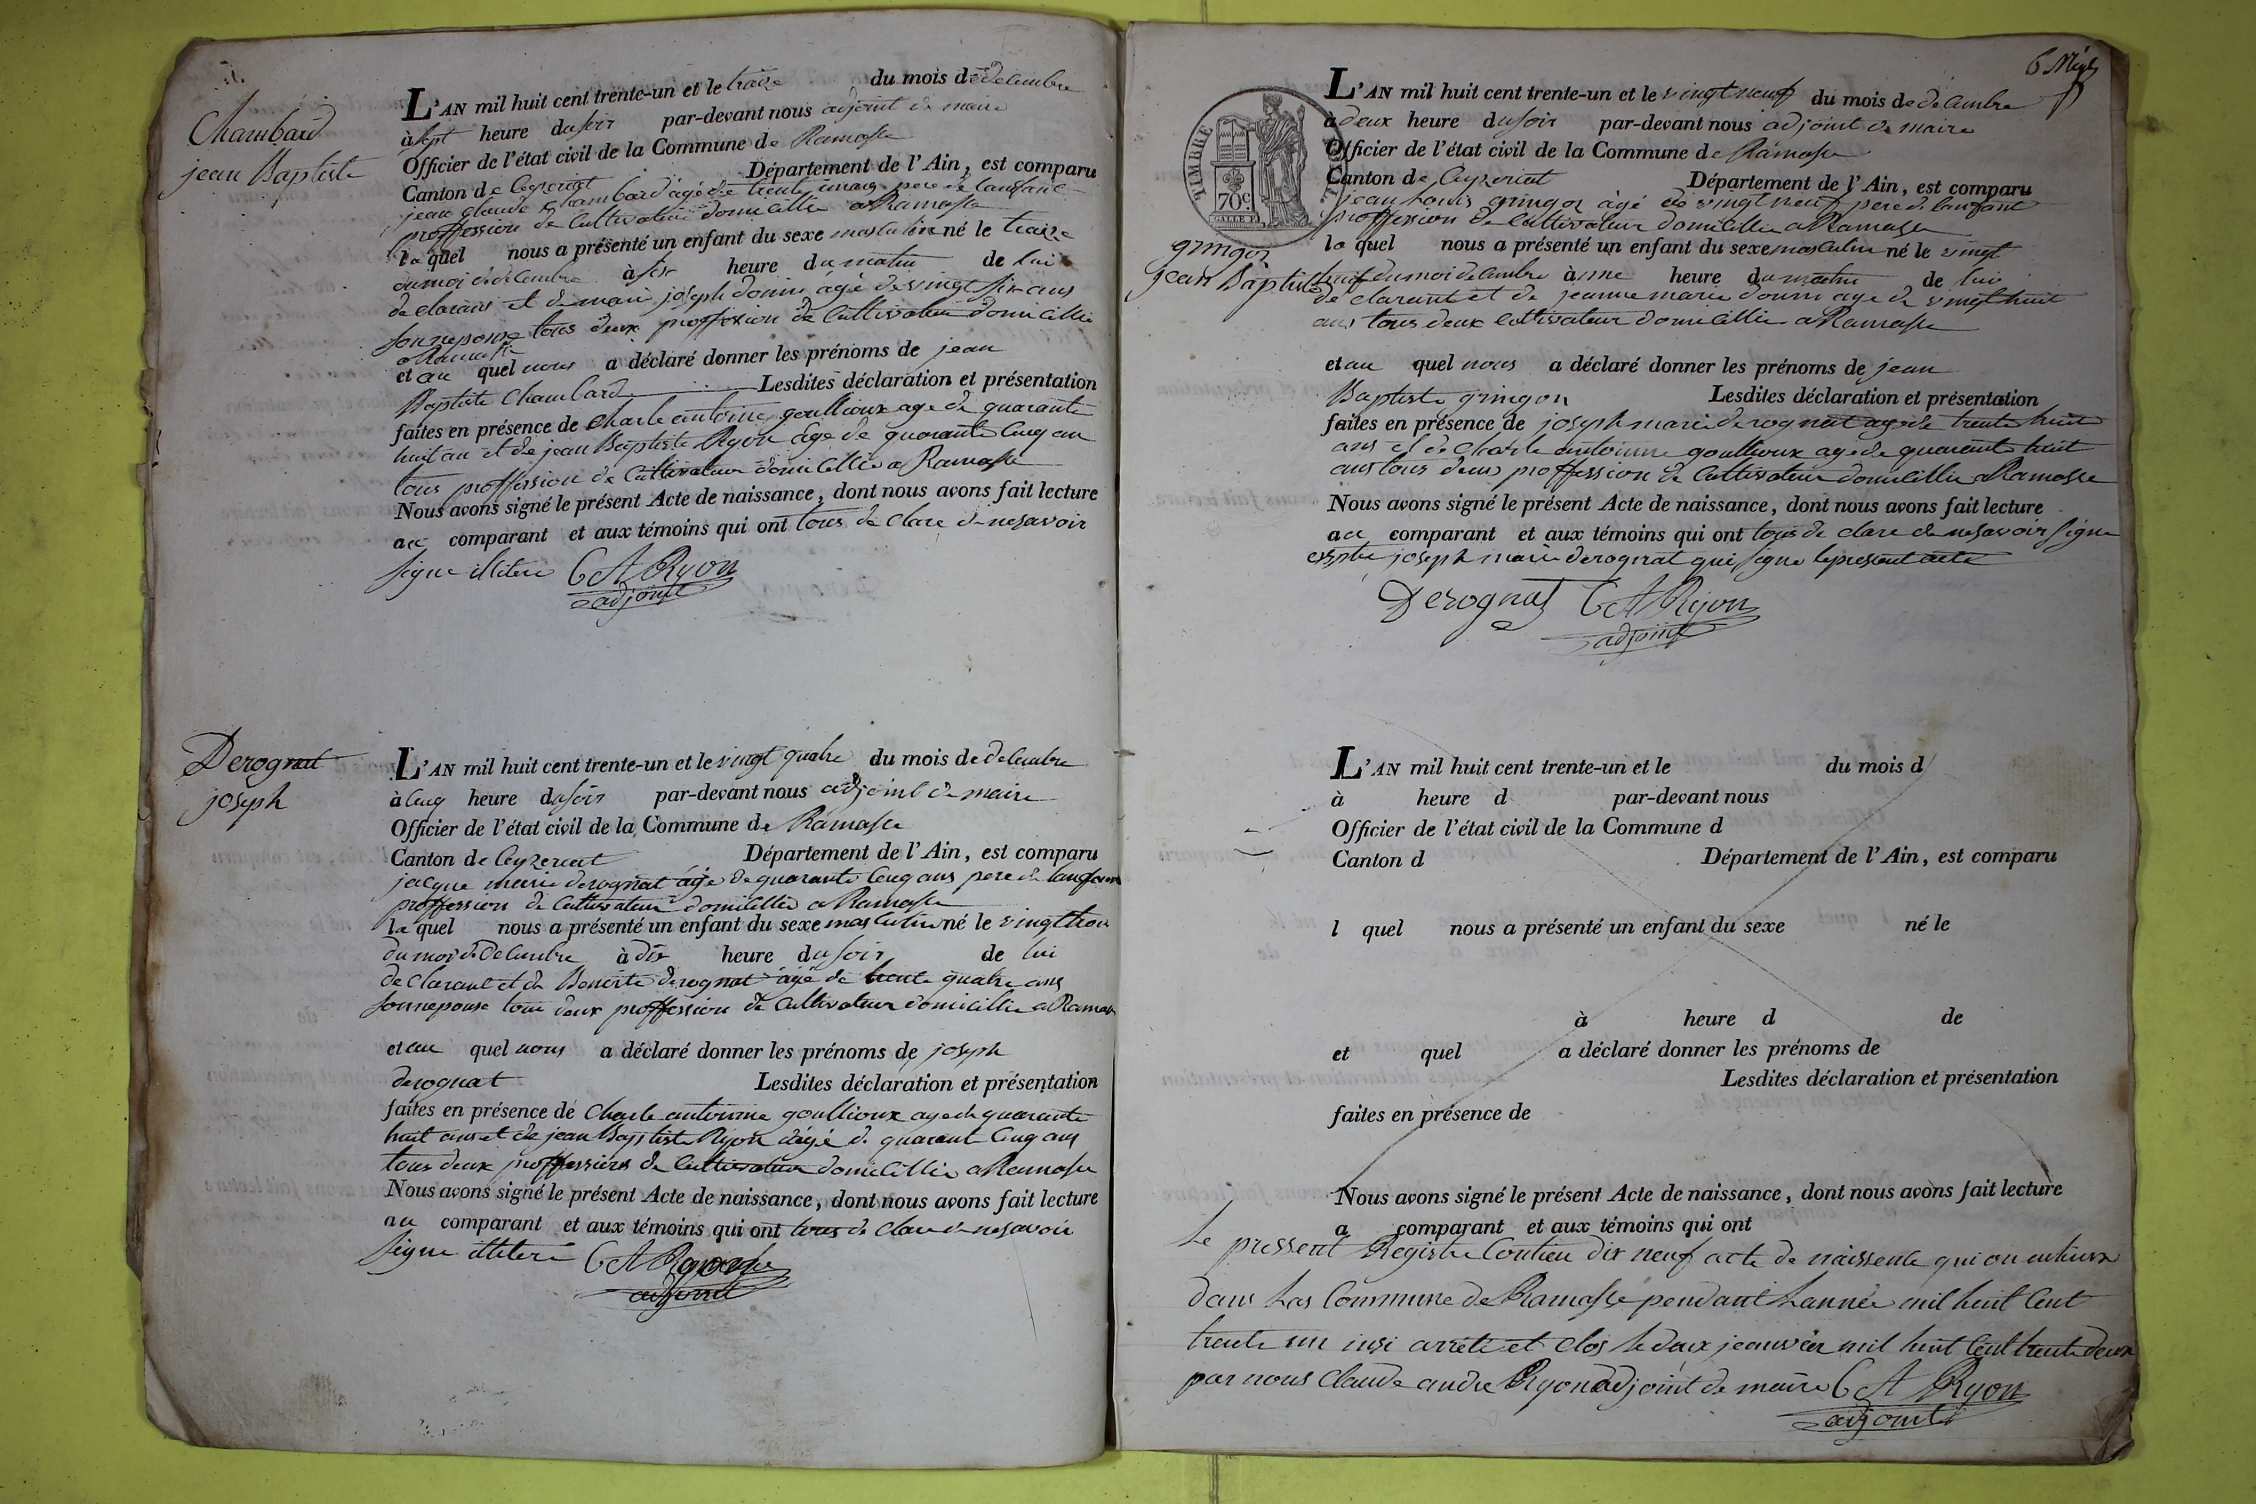 Chambard
jean Baptiste
L'AN mil huit cent trente-un et le traize du mois de decembre
à sept heure du soir par-devant nous adjoint de maire
Officier de l'état civil de la Commune de Ramasse
Canton de Ceyzeriat Département de l'Ain, est comparu
jean claude chambard âgé de trente ans pere de lanfant
proffession de Cultivateur domicillié a Ramasse
le quel nous a présenté un enfant du sexe masculin né le traize
du moi de decembre à six heure du matin de lui
declarant et de marie joseph donin âgé de vingt six ans
sonnepouse tous deux proffesion de Cultivateur domicillié
a Ramasse
et au quel nous a déclaré donner les prénoms de jean
Baptiste Chambard Lesdites déclaration et présentation
faites en présence de charle antoine goullioux age de quarante
huit an et de jean Baptiste Ryon âge de quarante cinq an
tous proffession de Cultivateur domicillié a Ramasse
Nous avons signé le présent Acte de naissance, dont nous avons fait lecture
au comparant et aux témoins qui ont tous de clare de nesavoir
signe illiteré C A Ryon
adjoint
Derognat
joseph
L'AN mil huit cent trente-un et le vingt quatre du mois de decembre
à cinq heure du soir par-devant nous adjoint de maire
Officier de l'état civil de la Commune de Ramasse
Canton de Ceyzeriat Département de l'Ain, est comparu
jacque marie derognat âgé de quarante cinq ans pere de lanfant
proffession de Cultivateur domicillié a Ramasse
le quel nous a présenté un enfant du sexe masculin né le vingttrois
du moi de decembre à dix heure du soir de lui
declarant et de Benoite derognat âgé de trente quatre ans
sonnepouse tous deux proffession de Cultivateur domicillié a Ramasse
et au quel nous a déclaré donner les prénoms de joseph
derognat Lesdites déclaration et présentation
faites en présence de Charle antoine goullioux age de quarante
huit ans et de jean Baptiste Ryon âgé de quarante cinq ans
tous deux proffession de Cultivateur domicillié a Ramasse
Nous avons signé le présent Acte de naissance, dont nous avons fait lecture
au comparant et aux témoins qui ont tous de clare de nesavoir
signe illiteré C A Ryon
adjoint
TIMBRE
70c
L'AN mil huit cent trente-un et le vingt neuf du mois de decembre
à deux heure du soir par-devant nous adjoint de maire
Officier de l'état civil de la Commune de Ramasse
Canton de Ceyzeriat Département de l'Ain, est comparu
jean Louis gringoz âgé de vingt neuf pere de lanfant
proffession de Cultivateur domicillié a Ramasse
gringoz
jean Baptiste
le quel nous a présenté un enfant du sexe masculin né le vingt
huit du moi decembre à une heure du matin de lui
declarant et de jeanne marie donin age de vingt huit
ans tous deux cultivateur domicillié a Ramasse
et au quel nous a déclaré donner les prénoms de jean
Baptiste gringoz Lesdites déclaration et présentation
faites en présence de joseph marie derognat age de trente huit
ans et de charle antoinne goullioux age de quarante huit
ans tous deux proffession de Cultivateur domicillié a Ramasse
Nous avons signé le présent Acte de naissance, dont nous avons fait lecture
au comparant et aux témoins qui ont tous de clare de nesavoir signe
joseph marie derognat qui signe le present acte
Derognat C A Ryon
adjoint
L'AN mil huit cent trente-un et le du mois d
à heure d par-devant nous
Officier de l'état civil de la Commune d
Canton d Département de l'Ain, est comparu
l quel nous a présenté un enfant du sexe né le
à heure d de
et quel a déclaré donner les prénoms de
Lesdites déclaration et présentation
faites en présence de
Nous avons signé le présent Acte de naissance, dont nous avons fait lecture
a comparant et aux témoins qui ont
Le pressent Registre Contien dix neuf acte de naissence qui on
dans Las Commune de Ramasse pendant Lannée mil huit Cent
trente un insi arrêté et clos le deux jeanvier mil huit Cent trente deux
par nous Claude andre Ryon adjoint de maire C A Ryon
adjoint